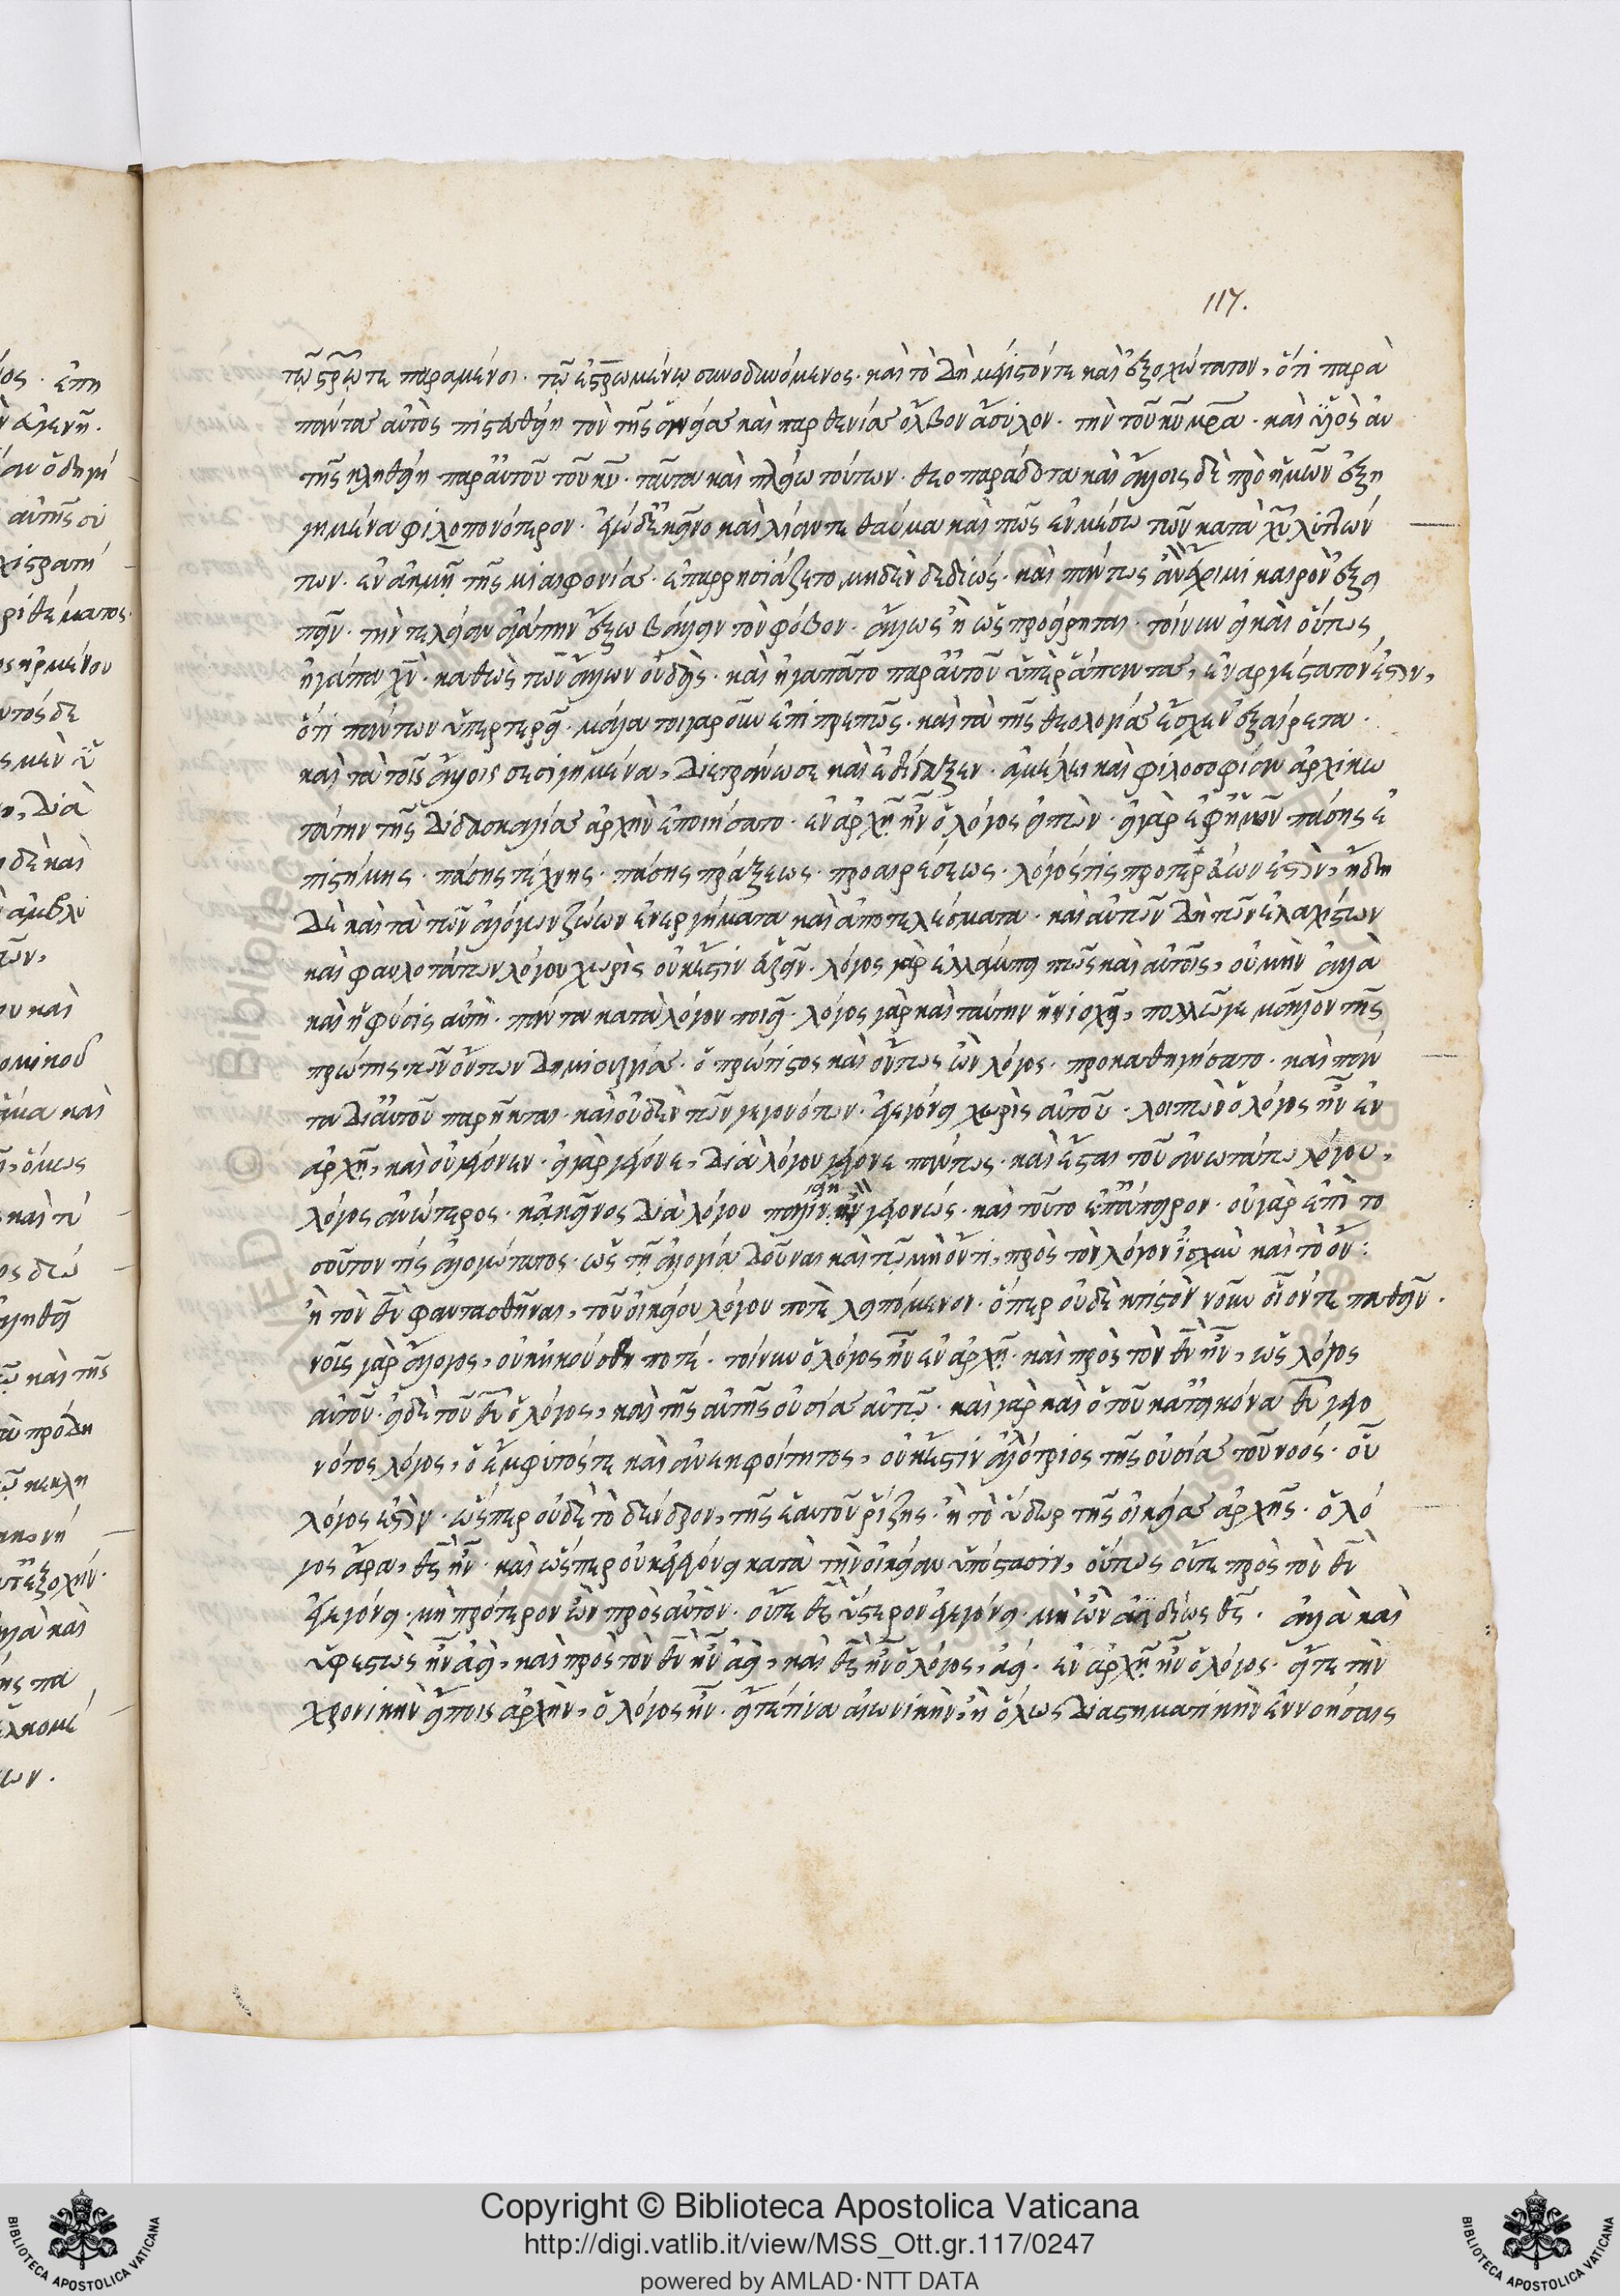 117.
τῷ σρ̅ῶ τε παραμένοι· τῷ ἐσρ̅ωμένω συνοδυνόμενος· καὶ τὸ δὴ μέγιστόν τε καὶ ἐξοχώτατον, ὅτι παρὰ
πάντα αὐτὸς πιστευθείη τὸν τῆς ἁγνείας καὶ παρθενίας ὄλβον ἄσυλον· τὴν τοῦ κυ̅ μρ̅α· καὶ υἱὸς αὐ
τῆς κληθείη παρ' αὐτοῦ τοῦ κυ̅· ταῦτα καὶ πλείω τούτων· θεοπαράδοτα καὶ ἄλλοις δὲ πρὸ ἡμῶν ἐξη
γημένα φιλοπονότερον· ἐγὼ δὲ κἀκεῖνο καὶ λίαν τε θαῦμα καὶ πῶς ἐν μέσω τῶν κατὰ χυ̅ λυττών
των· ἐν ἀκμῇ τῆς μιαιφονίας· ἐπαρρησιάζετο μηδὲν δεδιώς· καὶ πάντως καιρὸν ἐξει
πεῖν· τὴν τελείαν ἀγάπην ἔξω βάλλειν τὸν φόβον· ἄλλως ἢ ὡς προείρηται· τοίνυν εἰ καὶ οὕτως
ἠγάπα χν̅· καθὼς τῶν ἄλλων οὐδείς· καὶ ἠγαπᾶτο παρ' αὐτοῦ ὑπὲρ ἅπαντας, ἐναργέστατόν ἐστιν,
ὅτι πάντων ὑπερτερεῖ· μάλα τοιγαροῦν ἐπιπρεπῶς· καὶ τὰ τῆς θεολογίας ἔσχεν ἐξαίρετα·
καὶ τὰ τοῖς ἄλλοις σεσιγημένα, διετράνωσε καὶ ἐδίδαξεν· ἀμέλει καὶ φιλοσοφίαν ἀρχικω
τάτην τῆς διδασκαλίας ἀρχὴν ἐποιήσατο· ἐν ἀρχῇ ἦν ὁ λόγος εἰπών· εἰ γὰρ ἐφ' ἡμῶν πάσης ἐ
πιστήμης· πάσης τέχνης· πάσης πράξεως· προαιρέσεως· λόγος τίς προτερεύων ἐστὶν, ἤδη
δὲ καὶ τὰ τῶν ἀλόγων ζώων ἐνεργήματα καὶ ἀποτελέσματα· καὶ αὐτῶν δὴ τῶν ἐλαχίστων
καὶ φαυλοτάτων λόγου χωρὶς οὐκ ἔστιν εὑρεῖν· λόγος γὰρ ἐλλάμπει πῶς καὶ αὐτοῖς, οὐ μὴν ἀλλὰ
καὶ ἡ φύσις αὐτὴ· πάντα κατὰ λόγον ποιεῖ· λόγος γὰρ καὶ ταύτην ἡνιοχεῖ, πολλῶ γε μᾶλλον τῆς
πρώτης τῶν ὄντων δημιουργίας· ὁ πρώτιστος καὶ ὄντως ὢν λόγος· προκαθηγήσατο· καὶ πάν
τα δι' αὐτοῦ παρῆκται· καὶ οὐδὲν τῶν γεγονότων· ἐγεγόνει χωρὶς αὐτοῦ· λοιπὸν ὁ λόγος ἦν ἐν
ἀρχῇ, καὶ οὐ γέγονεν· εἰ γὰρ γέγονε, διὰ λόγου γέγονε πάντως· καὶ ἔσται τοῦ ἀνωτάτω λόγου,
λόγος ἀνώτερος· κἀκεῖνος διὰ λόγου πάλιν γεγονώς· καὶ τοῦτο ἐπ' ἄπειρον· οὐ γὰρ ἐπὶ το
σοῦτον τίς ἀλογώτατος· ὡς τῇ ἀλογίᾳ δοῦναι καὶ τῷ μὴ ὄντι, πρὸς τὸν λόγον ἰσχὺν καὶ τὸ ὄν:
ἢ τὸν θν̅ φαντασθῆναι, τοῦ οἰκείου λόγου ποτὲ λειπόμενον· ὅπερ οὐδὲ κτιστὸν νοῦν οἷόν τε παθεῖν·
νοῦς γὰρ ἄλογος, οὐκ ἠκούσθη ποτέ· τοίνυν ὁ λόγος ἦν ἐν ἀρχῇ· καὶ πρὸς τὸν θν̅ ἦν, ὡς λόγος
αὐτοῦ· εἰ δὲ τοῦ θυ̅ ὁ λόγος, καὶ τῆς αὐτῆς οὐσίας αὐτῷ· καὶ γὰρ καὶ ὁ τοῦ κατ' εἰκόνα θυ̅ γεγο
νότος λόγος, ὁ ἔμφυτός τε καὶ ἀνεκφοίτητος, οὐκ ἔστιν ἀλλότριος τῆς οὐσίας τοῦ νοός· οὗ
λόγος ἐστὶν· ὥσπερ οὐδὲ τὸ δένδρον, τῆς ἑαυτοῦ ῥίζης· ἢ τὸ ὕδωρ τῆς οἰκείας ἀρχῆς· ὁ λό
γος ἄρα, θς̅ ἦν· καὶ ὥσπερ οὐκ ἐγεγόνει κατὰ τὴν οἰκείαν ὑπόστασιν, οὕτως οὔτε πρὸς τὸν θν̅
ἐγεγόνει· μὴ πρότερον ὢν πρὸς αὐτόν· οὔτε θς̅ ὕστερον ἐγεγόνει· μὴ ὢν ἀϊδίως θς̅· ἀλλὰ καὶ
ὑφεστὼς ἦν ἀεὶ, καὶ πρὸς τὸν θν̅ ἦν ἀεὶ, καὶ θς̅ ἦν ὁ λόγος, ἀεί· ἐν ἀρχῇ ἦν ὁ λόγος· εἴτε τὴν
χρονικὴν εἴποις ἀρχὴν, ὁ λόγος ἦν· εἴτέ τινα αἰωνικὴν, ἢ ὅλως διαστηματικὴν ἐννοήσαις
Copyright © Biblioteca Apostolica Vaticana
http://digi.vatlib.it/view/MSS_Ott.gr.117/0247
powered by AMLAD·NTT DATA
BIBLIOTECA APOSTOLICA VATICANA
BIBLIOTECA APOSTOLICA VATICANA